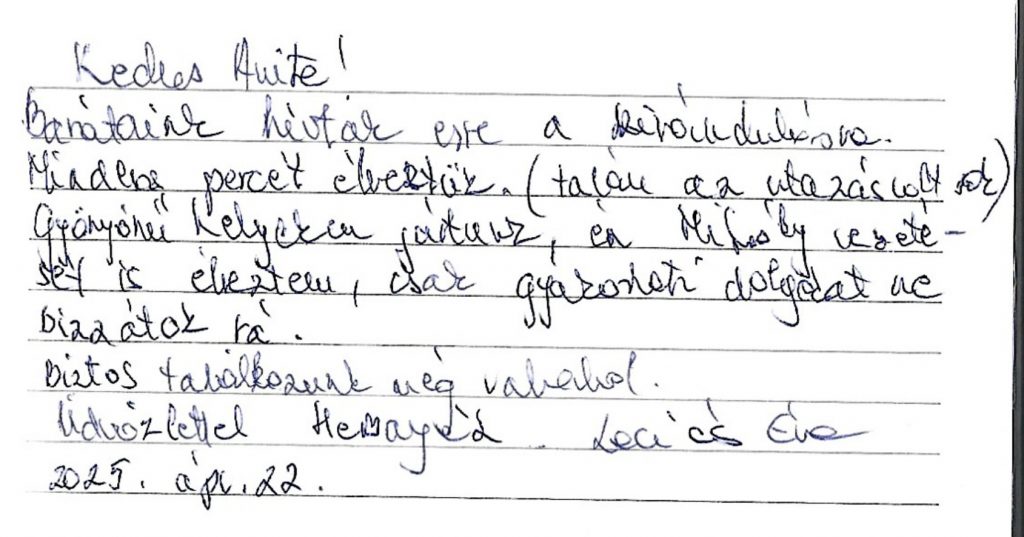 Kedves Anita!
Barátaink hívtak erre a kirándulásra.
Minden percét élveztük. (talán az utazás volt sok)
Gyönyörű helyeken jártunk, én Mihály vezeté-
sét is élveztem, csak gyakorlati dolgokat ne
bízzátok rá.
Biztos találkozunk még valahol.
Üdvözlettel Laci és Éva
2025. ápr. 22.